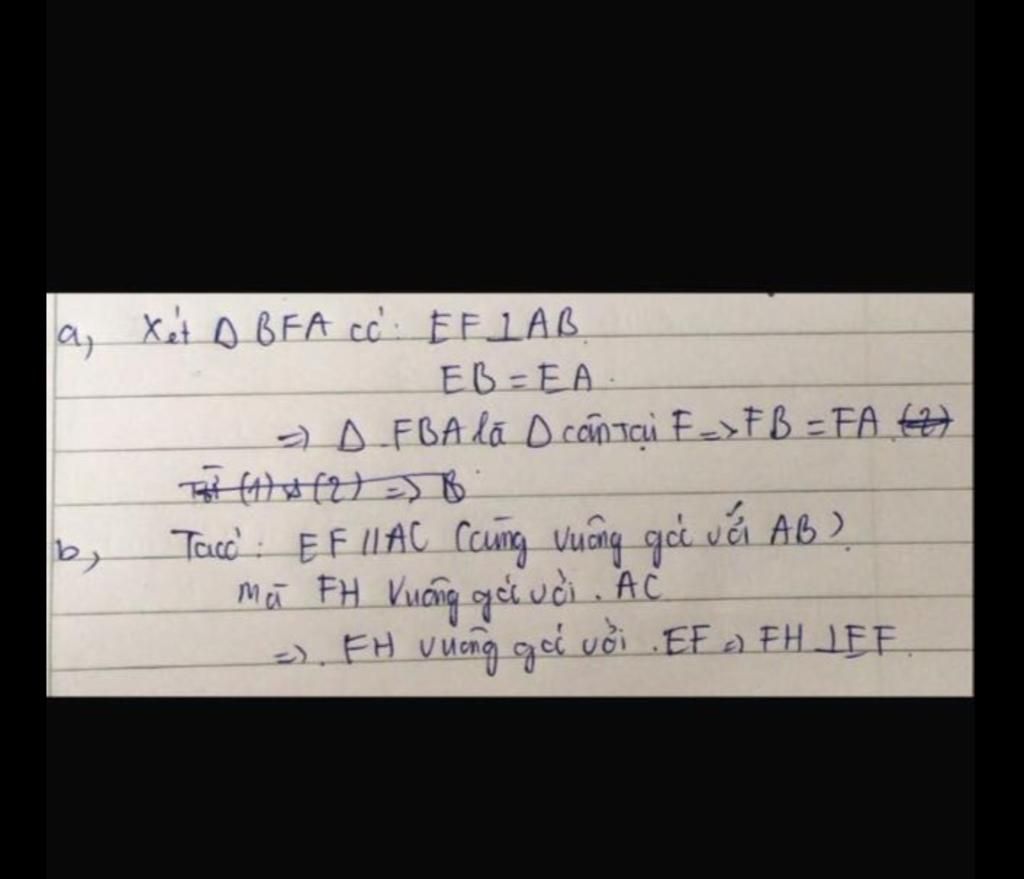 a, Xét Δ BFA có: EF⊥AB.
EB = EA.
=> Δ FBA là Δ cân tại F => FB = FA (2)
Từ (1) và (2) => B
b, Ta có: EF // AC (cùng vuông góc với AB).
mà FH vuông góc với AC
=> FH vuông góc với EF => FH ⊥ EF.